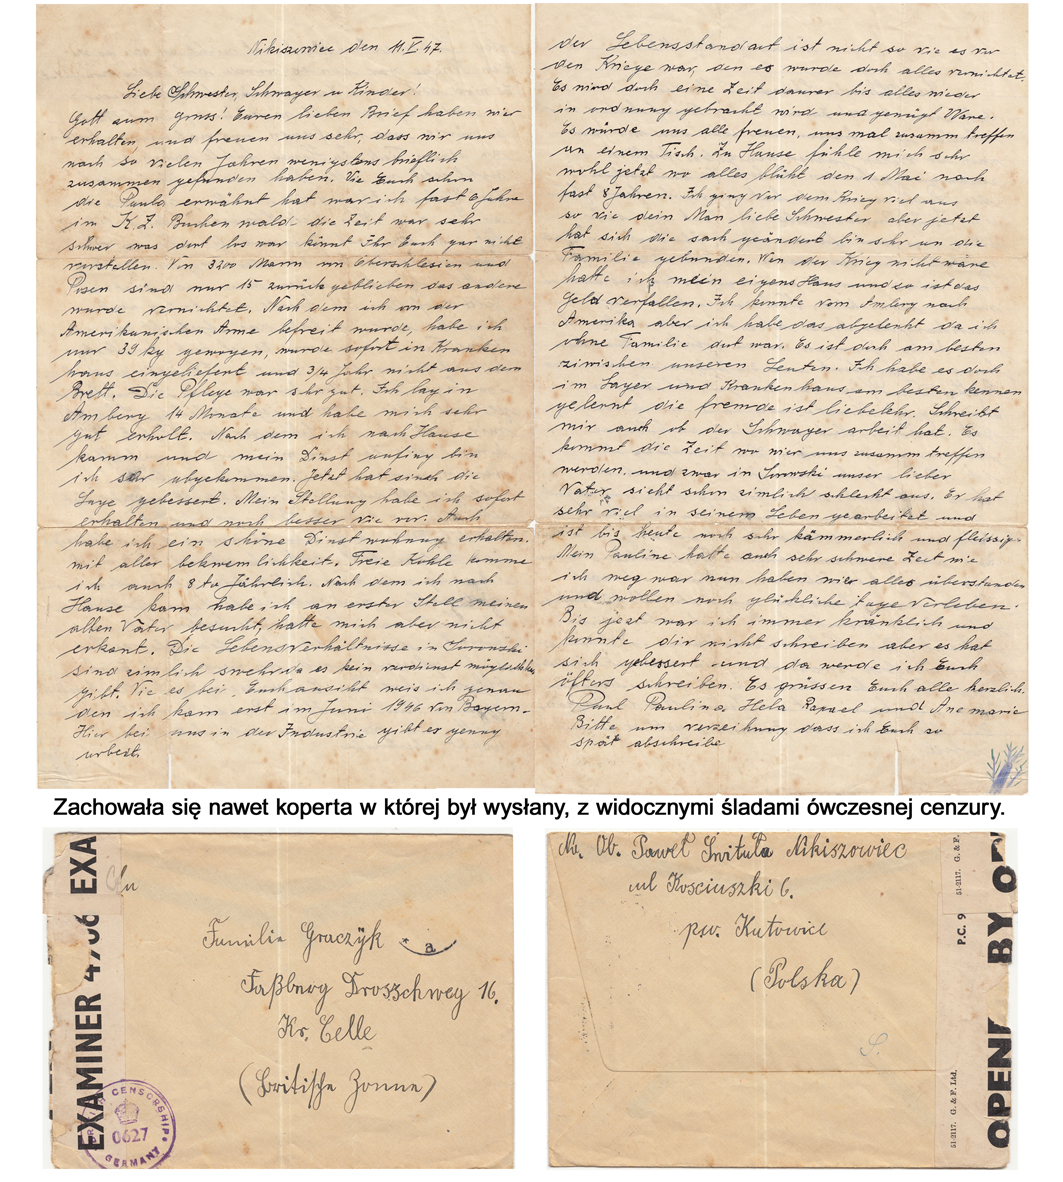 Nikiszowiec den 11.V.47.
Liebe Schwester, Schwager u Kinder!
Gott zum gruss! Euren lieben Brief haben wier
erhalten, und freuen uns sehr, dass wir uns
nach so vielen Jahren wenigstens brieflich
zusammen gefunden haben. Vie Euch schon
die Paula erwähnt hat war ich fast 6 Jahre
im K.Z. Buchenwald. die Zeit war sehr
schwer was dort los war könnt Ihr Euch gar nicht
vorstellen. Von 3200 Mann von Oberschlesien und
Posen sind nur 15 zurück geblieben das andere
wurde vernichtet. Nach dem ich von der
Amerikanischen Arme befreit wurde, habe ich
nur 39 kg gewogen, wurde sofort in Kranken
haus eingeliefert und 3/4 Jahr nicht aus dem
Bett. Die Pflege war sehr gut. Ich lag in
Amberg 14 Monate und habe mich sehr
gut erholt. Nach dem ich nach Hause
kamm und mein Dinst anfing bin
ich sehr abgekommen. Jetzt hat sich die
Lage gebessert. Mein Stellung habe ich sofort
erhalten und noch besser vie vor. Auch
habe ich ein shöne Dinst wohnung erhalten.
mit aller bekwemlichkeit. Freie Kohle komme
ich auch 8 to Jährlich. Nach dem ich nach
Hause kam habe ich an erster Stell meinen
alten Vater besucht, hatte mich aber nicht
erkant. Die Lebensverhältnisse in
sind zimlich da es kein verdienst
gibt. Vie es bei Euch ausiht weis ich genau
den ich kam erst im Juni 1946 von Bayern.
Hier bei uns in der Industrie gibt es genug
arbeit.
der Lebensstandart ist nicht so vie es vor
den Kriege war, den es wurde doch alles vernichtet.
Es wird doch eine Zeit dauern bis alles wieder
in ordnung gebracht wird und genügt Ware.
Es würde uns alle freuen, uns mal zusamm treffen
an einem Tisch. Zu Hause fühle mich sehr
wohl jetzt wo alles blüht den 1 Mai nach
fast 8 Jahren. Ich ging vor dem Krieg viel aus
so vie dein Man liebe Schwester aber jetzt
hat sich die sach geändert bin sehr an die
Familie gebunden. Wen der Krieg nicht wäre
hatte ich mein eigens Haus und so ist das
Geld verfallen. Ich konnte vom Amberg nach
Amerika aber ich habe das abgelenkt da ich
ohne Familie dort war. Es ist doch am besten
zwischen unseren Leuten. Ich habe es doch
im Lager und Krankenhaus am besten kennen
gelernt die fremde ist Schreibt
mir auch ob der Schwager arbeit hat. Es
kommt die Zeit wo wier uns zusamm treffen
werden. und zwar in unser lieber
Vater sieht schon zimlich schlecht aus. Er hat
sehr viel in seinem Leben gearbeitet und
ist bis heute noch sehr kümmerlich und fleissig.
Mein Pauline hatte auch sehr schwere Zeit wie
ich weg war nun haben wier alles überstanden
und wollen noch glückliche tage verleben.
Bis jezt war ich immer kränklich und
konnte dir nicht schreiben aber es hat
sich gebessert und da werde ich Euch
öfters schreiben. Es grüssen Euch alle herzlich.
Paul Paulina, Hela und Anemarie
Bitte um verzeihung dass ich Euch so
spät abschreibe
Zachowała się nawet koperta w której był wysłany, z widocznymi śladami ówczesnej cenzury.
An
Familie Graczyk
a
Faßberg Drosschweg 16.
Kr. Celle
(Britische Zonne)
EXAMINER 4906 EXA
CENSORSHIP
0627
GERMANY
Ob. Paweł Śwituła Nikiszowiec
ul Kosciuszki 6.
pow. Katowice
(Polska)
S.
51-2117. G. & F.
P.C. 9
51-2117. G. & F. Ltd.
OPENE BY